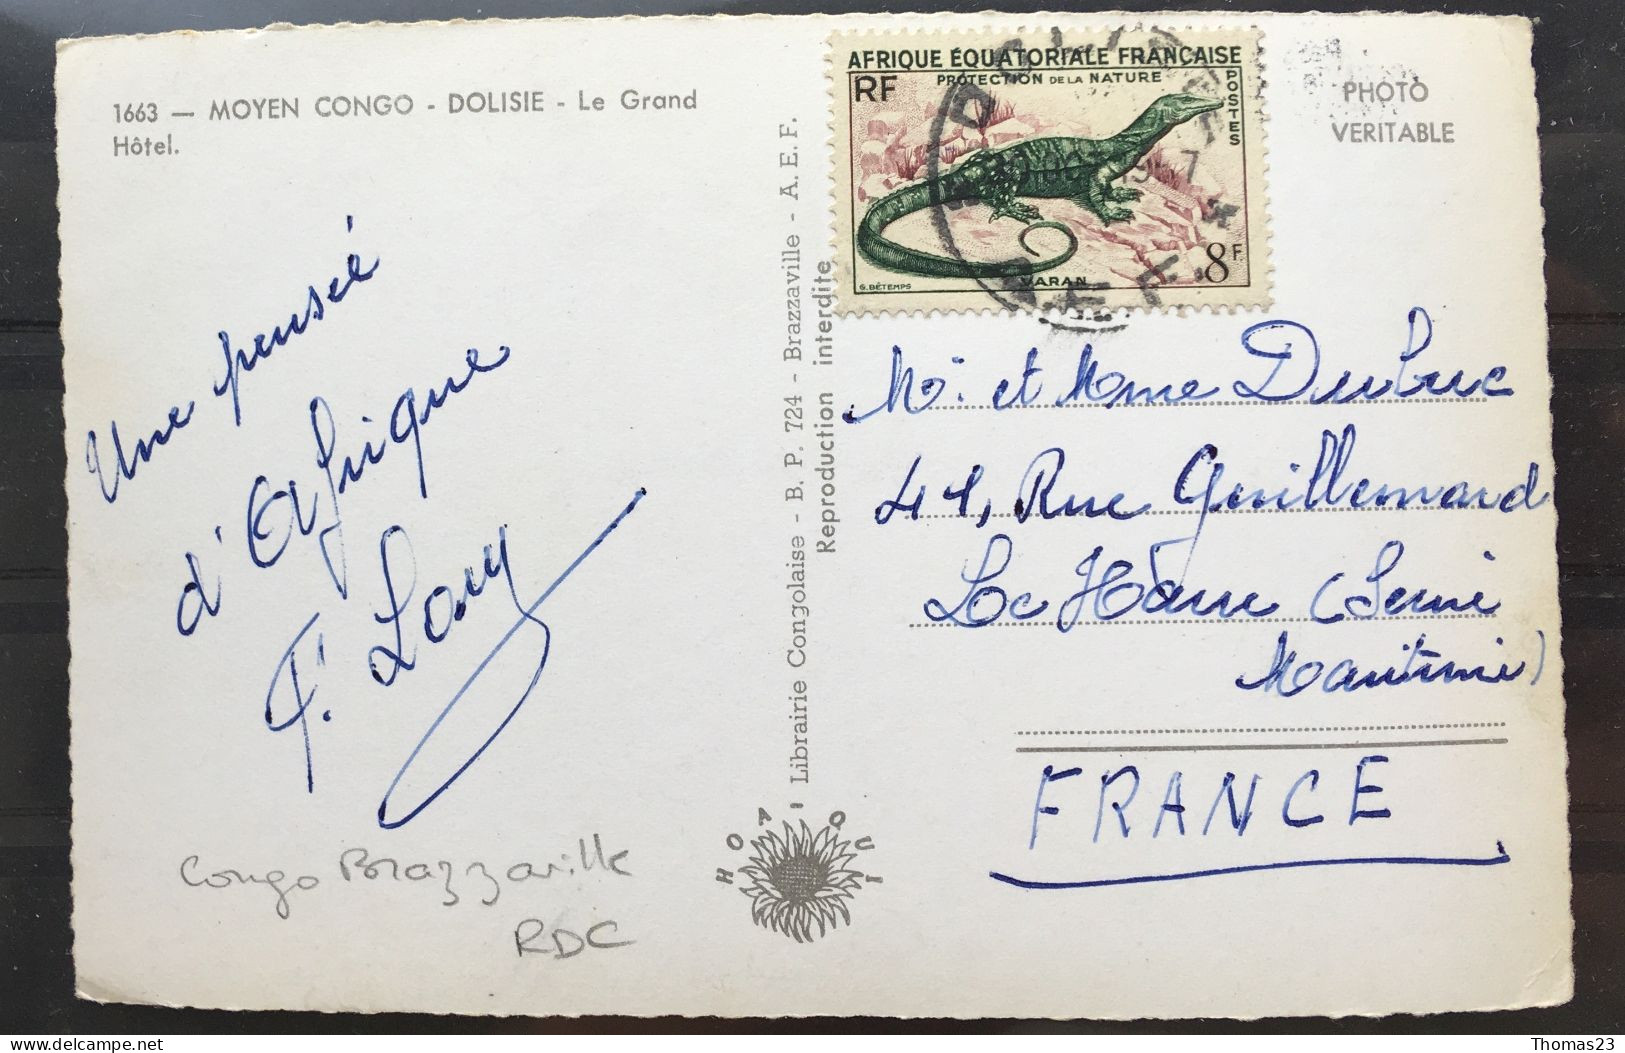 1663 — MOYEN CONGO - DOLISIE - Le Grand
Hôtel.
Une pensée
d'Afrique
Librairie Congolaise - B. P. 724 - Brazzaville - A. E. F.
Reproduction interdite
HOA-QUI
Congo Brazzaville
RDC
AFRIQUE ÉQUATORIALE FRANÇAISE
PROTECTION DE LA NATURE
RF
POSTES
8F
VARAN
G. BÉTEMPS
DOLISIE
A.E.F.
PHOTO
VERITABLE
Mr et Mme Dubuc
41, Rue Guillemard
Le Hâvre (Seine
Maritime)
FRANCE
delcampe.net
Thomas23